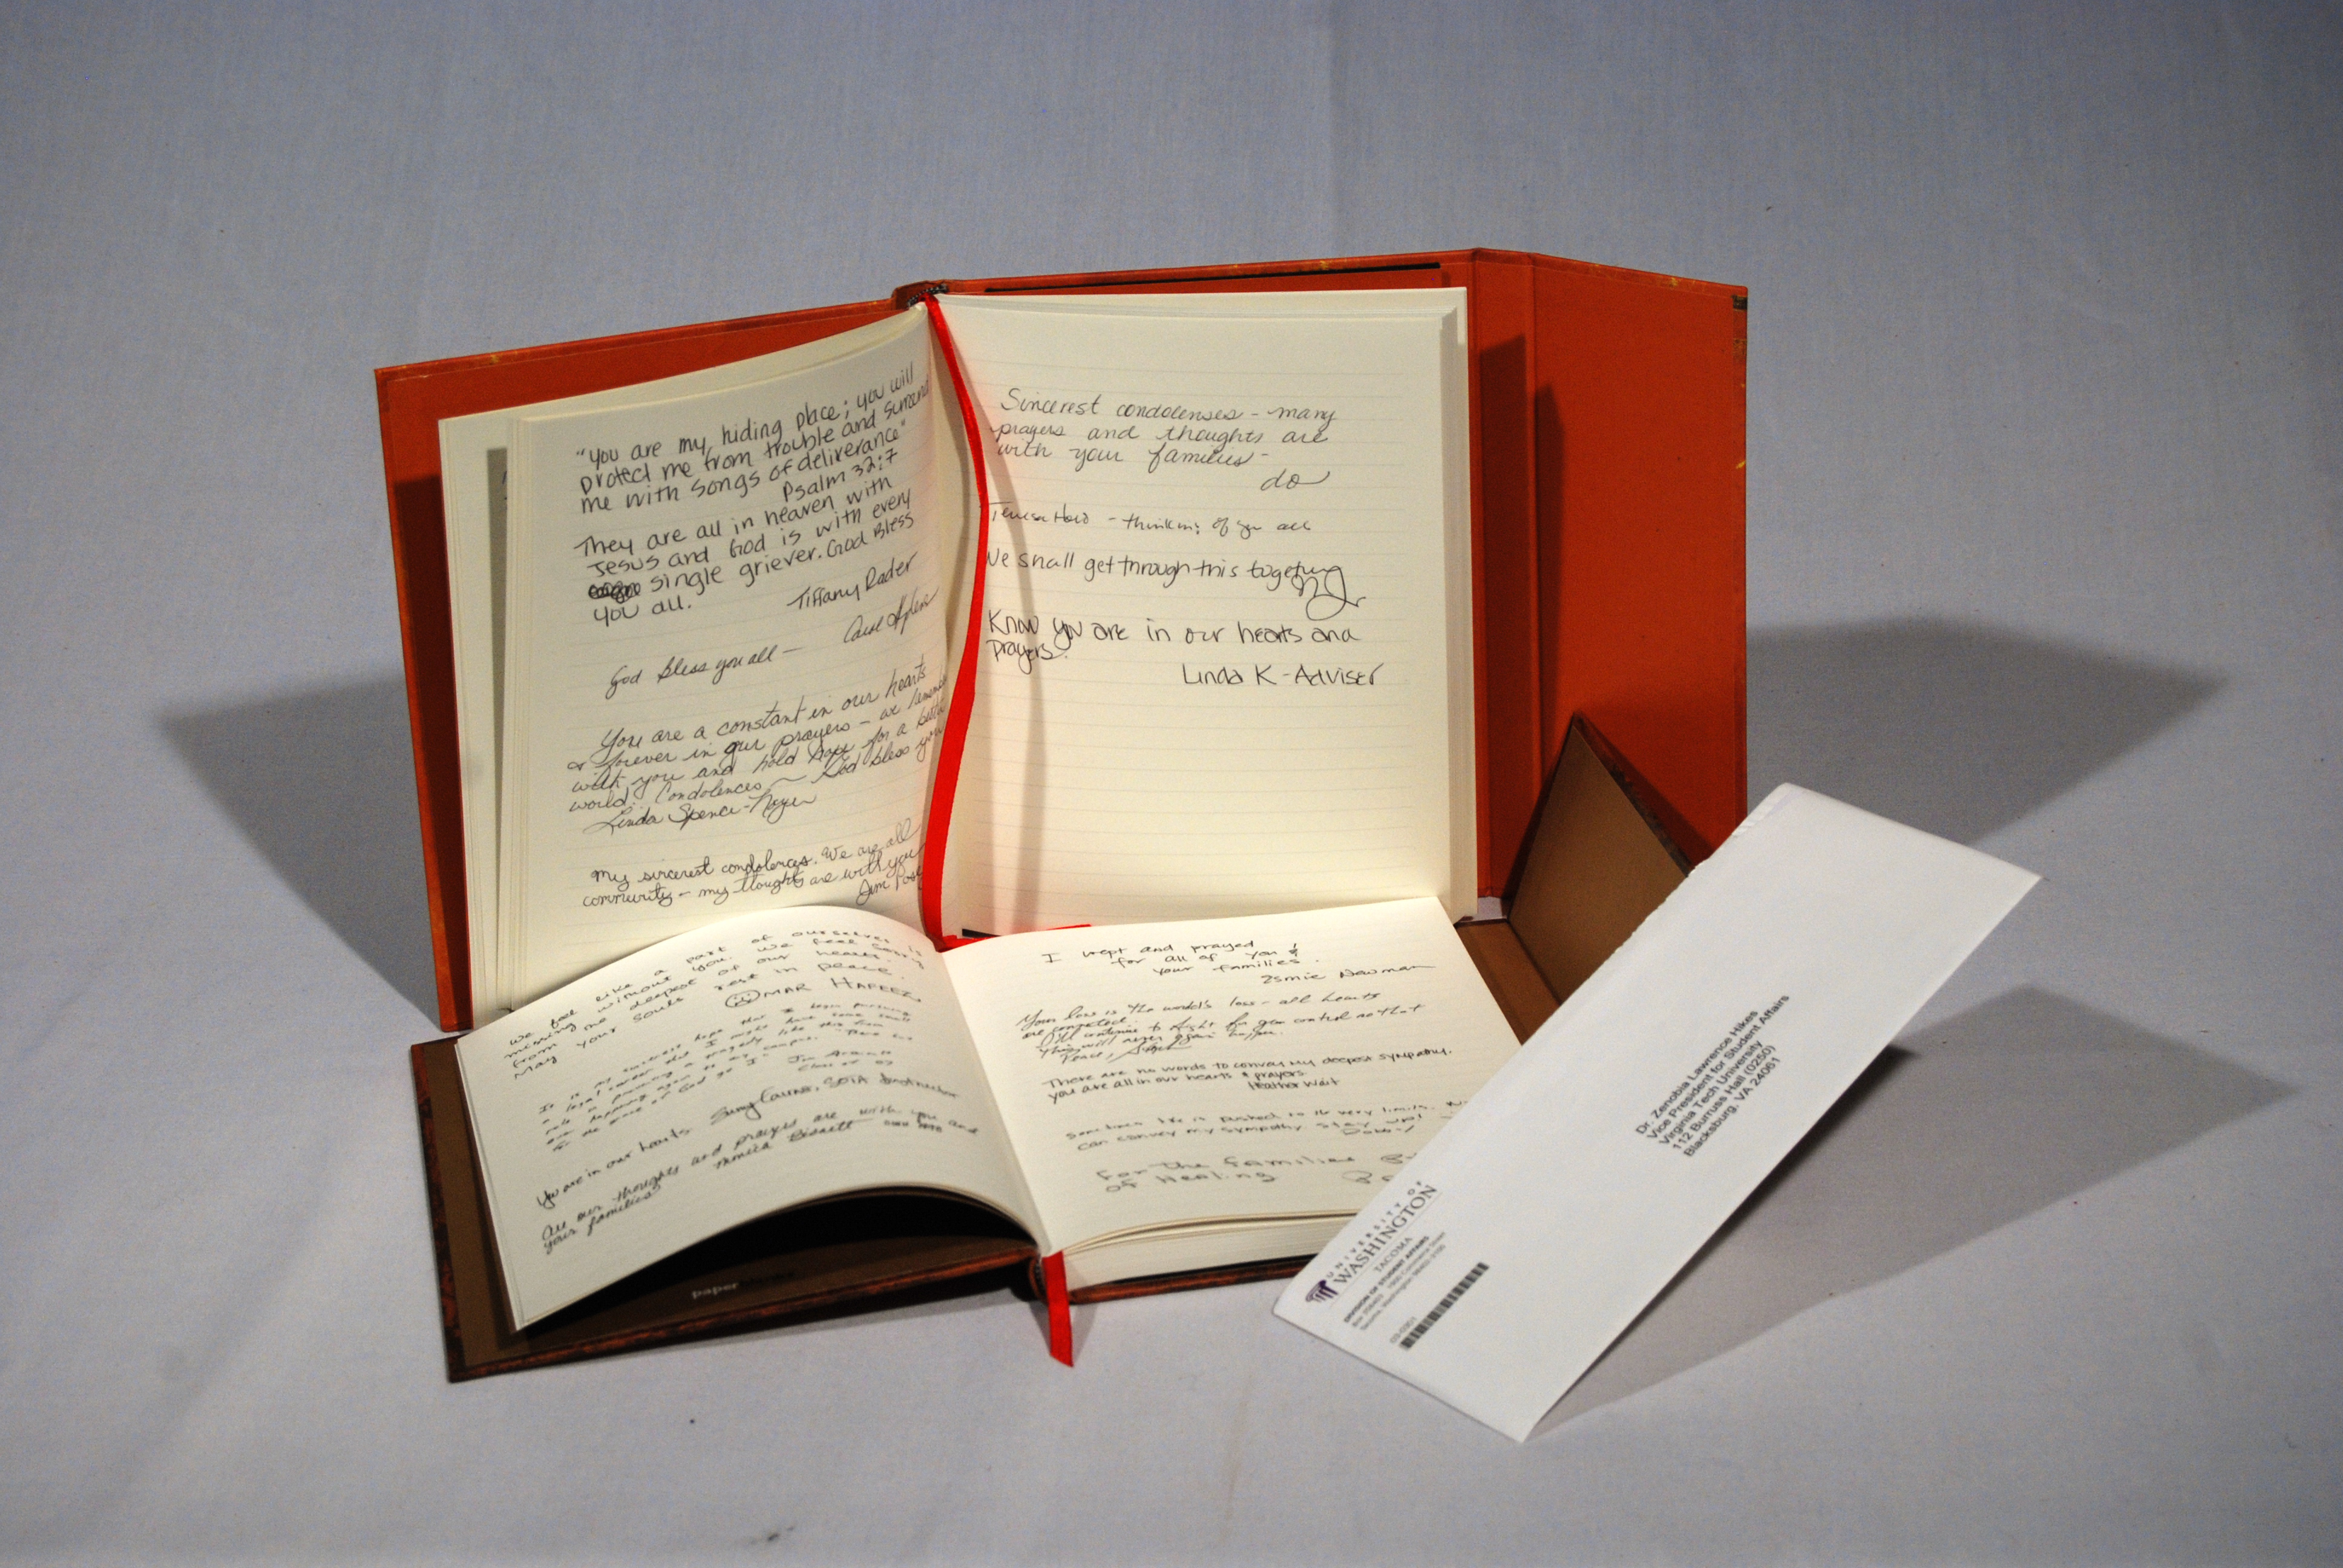 "You are my hiding place; you will
protect me from trouble and surround
me with songs of deliverance"
Psalm 32:7
They are all in heaven with
Jesus and God is with every
single griever. God Bless
you all.
Tiffany Rader
God bless you all —
You are a constant in our hearts
& forever in our prayers – we
with you and hold hope for a
world. Condolences — God bless you
Linda Spence-
My sincerest condolences. We are all
community – my thoughts are with you
Jim
Sincerest condolenses – many
prayers and thoughts are
with your families –
do
– thinking of you all
We shall get through this together
Know you are in our hearts and
prayers.
Linda K – Adviser
We feel like a part of ourselves is
missing without you. We feel sorry
from the deepest of our hearts.
May your souls rest in peace.
OMAR HAFEEZ.
It is my sincerest hope that as I begin pursuing
a legal career that I might have some small
role in preventing a tragedy like this from
ever happening again to any campus. There but
for the grace of God go I
You are in our hearts.
All our thoughts and prayers are with you and
your families
I wept and prayed
for all of you &
your families.
Newman
Your loss is the world's loss – all hearts
are connected.
I'll continue to fight for gun control so that
this will never again happen.
Peace,
There are no words to convey my deepest sympathy.
you are all in our hearts & prayers.
Heather Wait
Sometimes life is pushed to its very limits.
can convey my sympathy. Stay
For the families
of Healing
paper
Dr. Zenobia Lawrence Hikes
Vice President for Student Affairs
Virginia Tech University
112 Burruss Hall (0250)
Blacksburg, VA 24061
UNIVERSITY OF
WASHINGTON
TACOMA
DIVISION OF STUDENT AFFAIRS
1900 Commerce Street
Tacoma, Washington 98402-3100